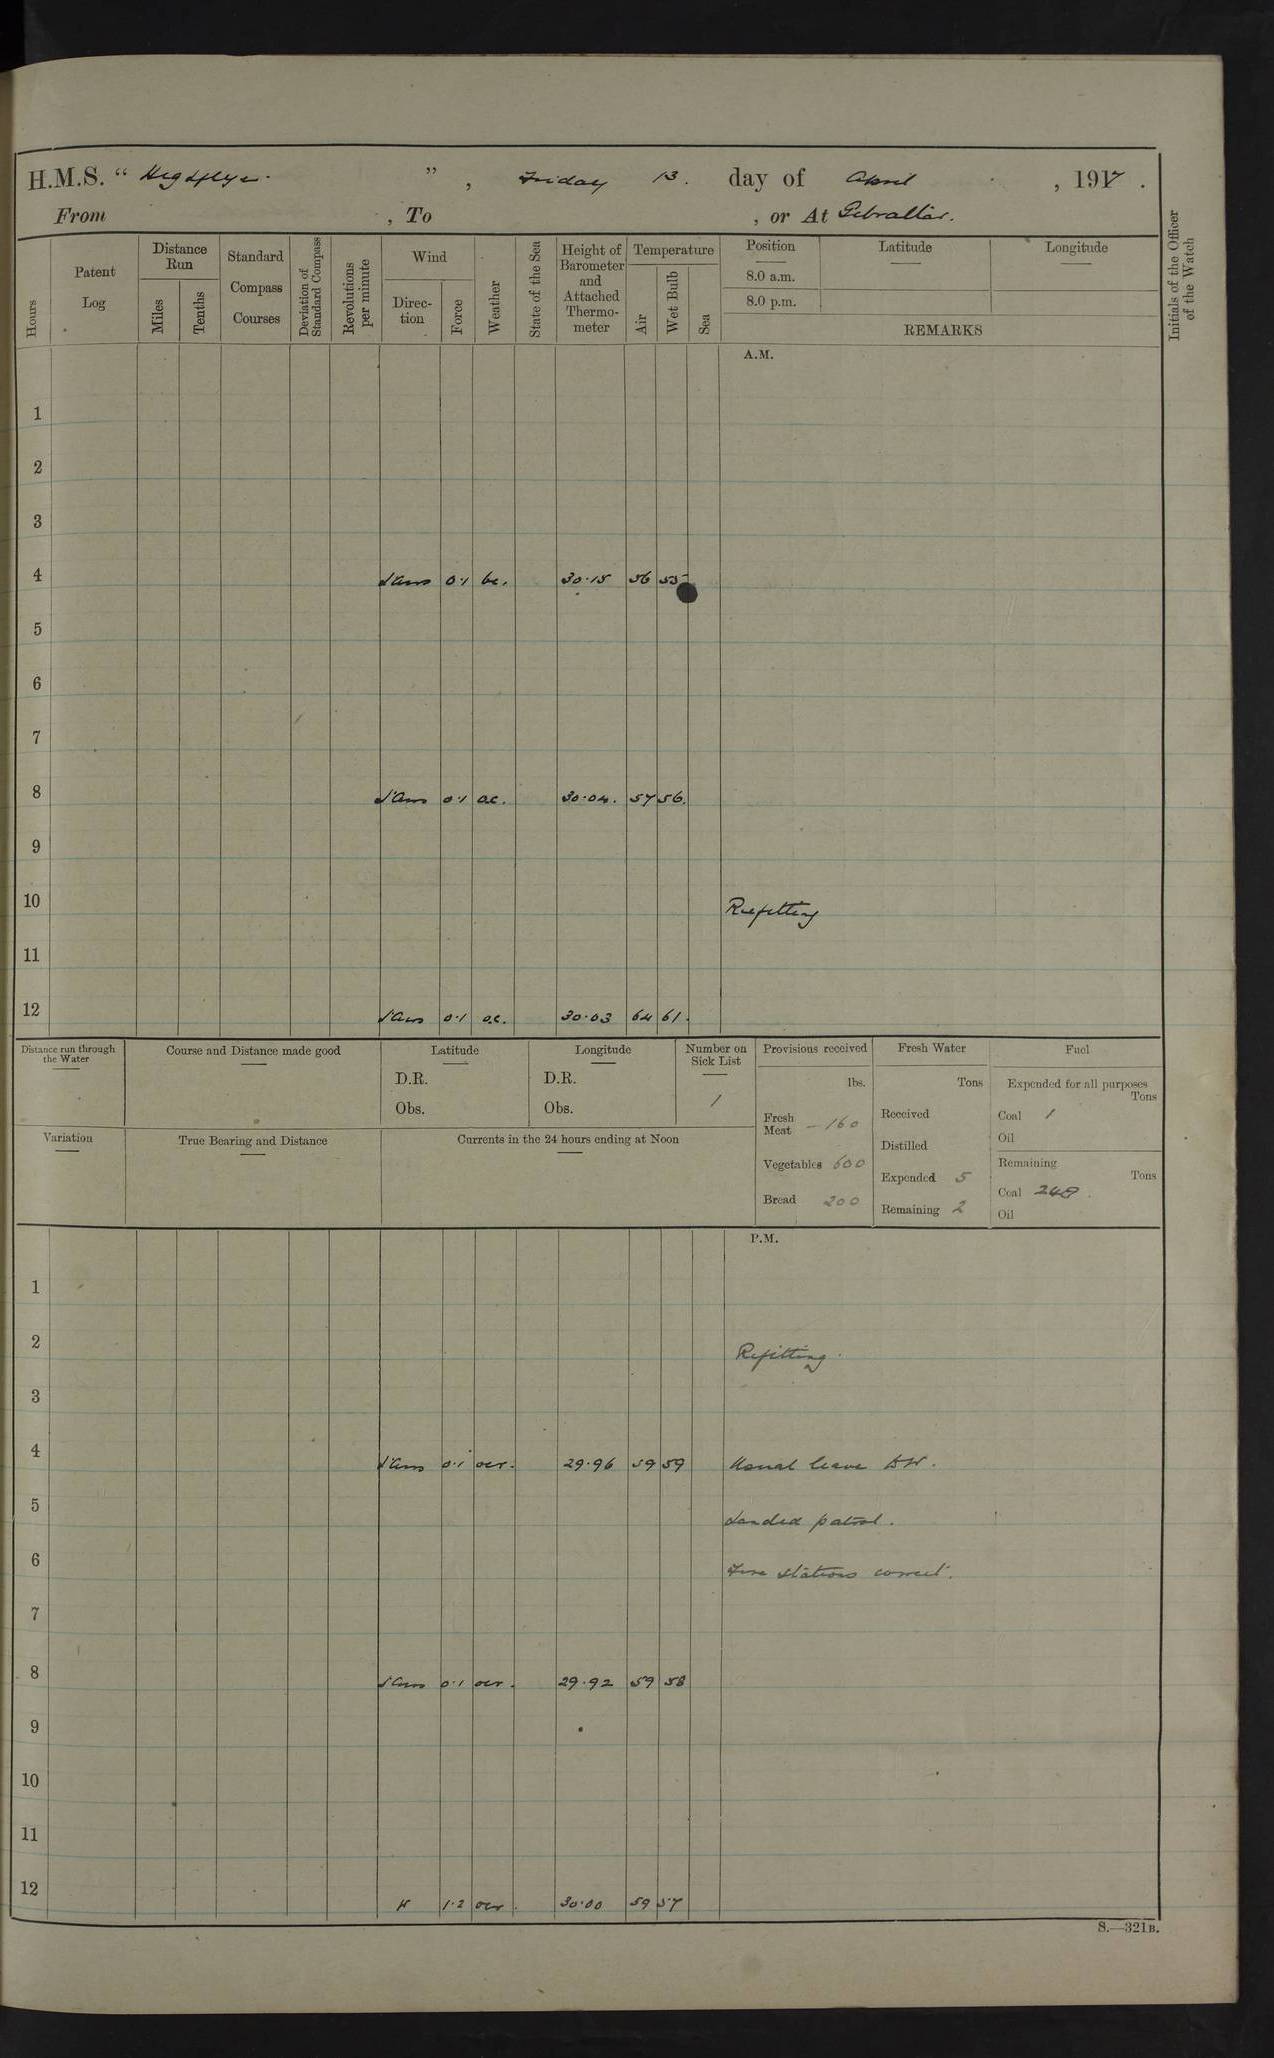 H.M.S. “ Highflyer. ” , Friday 13. day of April , 1917 .
From , To , or At Gibraltar.
Hours
Patent Log
Distance Run
Miles
Tenths
Standard Compass Courses
Deviation of Standard Compass
Revolutions per minute
Wind
Direction
Force
Weather
State of the Sea
Height of Barometer and Attached Thermometer
Temperature
Air
Wet Bulb
Sea
Position
8.0 a.m.
8.0 p.m.
Latitude
Longitude
REMARKS
Initials of the Officer of the Watch
A.M.
1
2
3
4 0·1 bc. 30·15 56 55
5
6
7
8 0·1 o.c. 30·04. 57 56.
9
10 Refitting
11
12 0·1 o.c. 30·03 64 61.
Distance run through the Water
Course and Distance made good
Latitude
D.R.
Obs.
Longitude
D.R.
Obs.
Number on Sick List
1
Provisions received
lbs.
Fresh Meat – 160
Vegetables 600
Bread 200
Fresh Water
Tons
Received
Distilled
Expended 5
Remaining 2
Fuel
Expended for all purposes
Tons
Coal 1
Oil
Remaining
Tons
Coal 248.
Oil
Variation
True Bearing and Distance
Currents in the 24 hours ending at Noon
P.M.
1
2 Refitting.
3
4 0·1 ocr. 29·96 59 59 Usual leave
5 Landed patrol.
6 Fire stations correct.
7
8 0·1 ocr. 29·92 59 58
9
10
11
12 1·2 ocr. 30·00 59 57
S.—321B.